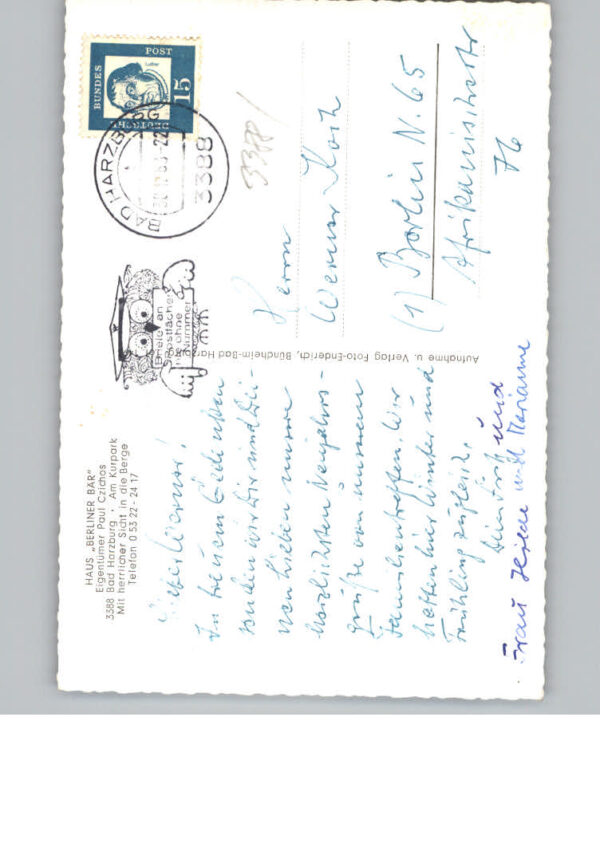 HAUS „BERLINER BÄR"
Eigentümer Paul Czichos
3388 Bad Harzburg · Am Kurpark
Mit herrlicher Sicht in die Berge
Telefon 0 53 22 - 24 17
Lieber Werner!
In treuem Gedenken
senden wir Dir und Dei-
nen Lieben unsere
herzlichsten Neujahrs-
grüße von unserem
Familientreffen. Wir
hatten hier Winter und
Frühling zugleich.
Dein Fritz und
Frau Hilde und Marianne
Aufnahme u. Verlag Foto-Enderich, Bündheim-Bad Harzburg
BUNDES
POST
DEUTSCHE
Luther
15
BAD HARZBURG
3388
Briefe an
Postfächer
nie ohne
Nummer
3388/
Herrn
Werner Koch
(1) Berlin N. 65
Afrikanischestr
76